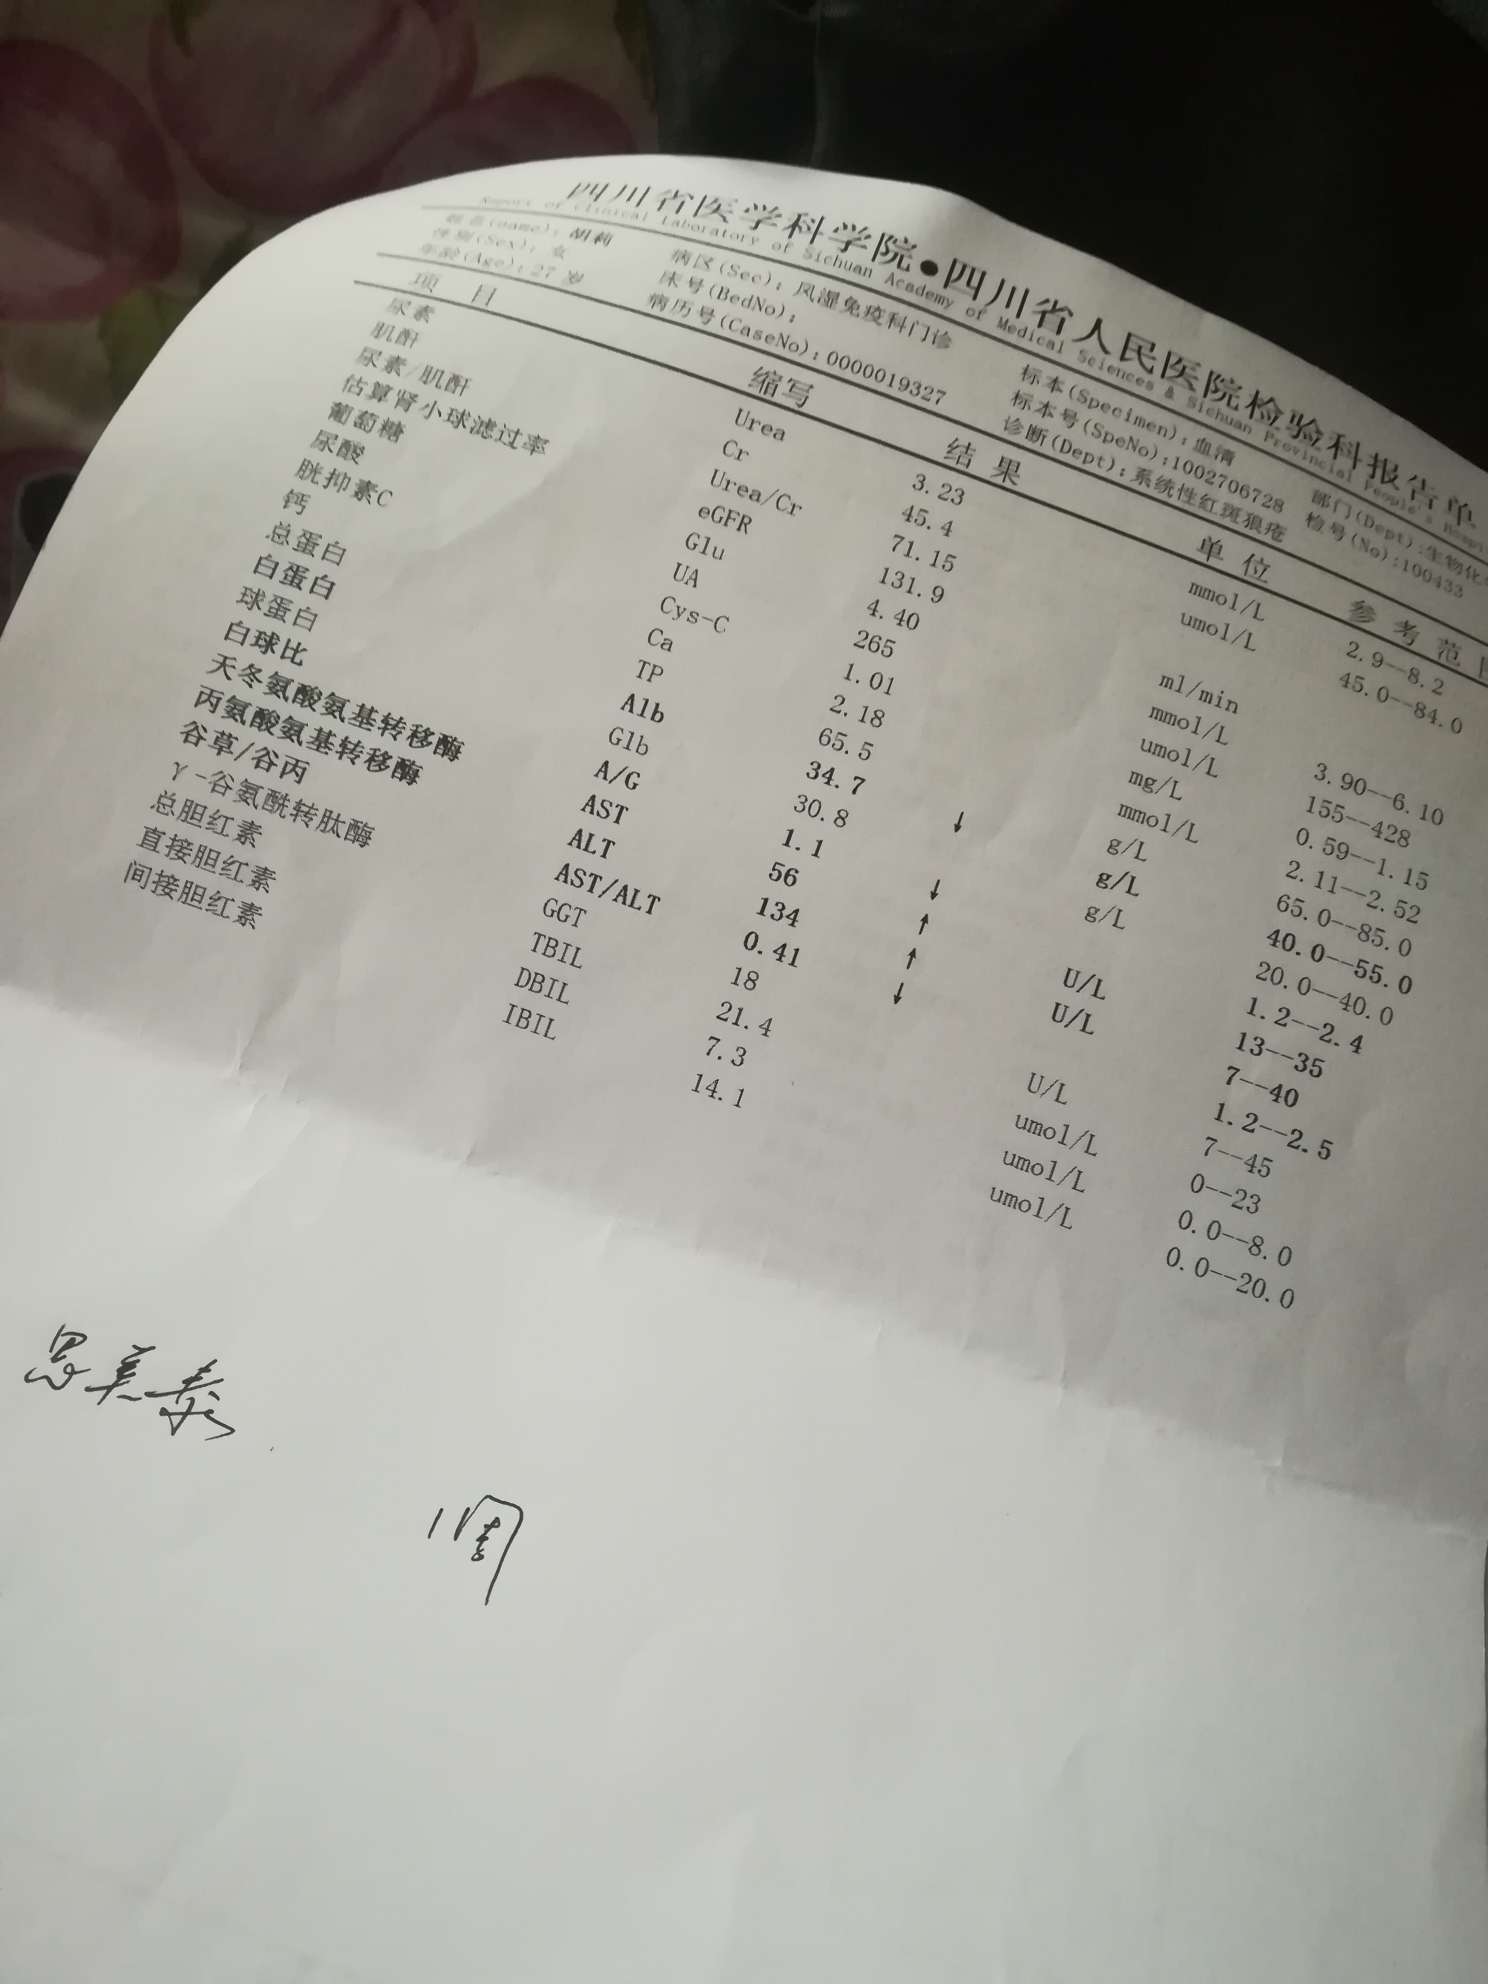 四川省医学科学院●四川省人民医院检验科报告单
Report of Clinical Laboratory of Sichuan Academy of Medical Sciences & Sichuan Provincial People's Hospi
姓名(name): 胡莉 病区(Sec): 风湿免疫科门诊 标本(Specimen): 血清 部门(Dept): 生物化
性别(Sex): 女 床号(BedNo): 标本号(SpeNo): 1002706728 检号(No): 100433
年龄(Age): 27 岁 病历号(CaseNo): 0000019327 诊断(Dept): 系统性红斑狼疮
项 目 缩写 结 果 单 位 参 考 范
尿素 Urea 3.23 mmol/L 2.9--8.2
肌酐 Cr 45.4 umol/L 45.0--84.0
尿素/肌酐 Urea/Cr 71.15
估算肾小球滤过率 eGFR 131.9 ml/min
葡萄糖 Glu 4.40 mmol/L 3.90--6.10
尿酸 UA 265 umol/L 155--428
胱抑素C Cys-C 1.01 mg/L 0.59--1.15
钙 Ca 2.18 mmol/L 2.11--2.52
总蛋白 TP 65.5 g/L 65.0--85.0
白蛋白 Alb 34.7 ↓ g/L 40.0--55.0
球蛋白 Glb 30.8 g/L 20.0--40.0
白球比 A/G 1.1 ↓ 1.2--2.4
天冬氨酸氨基转移酶 AST 56 ↑ U/L 13--35
丙氨酸氨基转移酶 ALT 134 ↑ U/L 7--40
谷草/谷丙 AST/ALT 0.41 ↓ 1.2--2.5
γ-谷氨酰转肽酶 GGT 18 U/L 7--45
总胆红素 TBIL 21.4 umol/L 0--23
直接胆红素 DBIL 7.3 umol/L 0.0--8.0
间接胆红素 IBIL 14.1 umol/L 0.0--20.0
思美泰